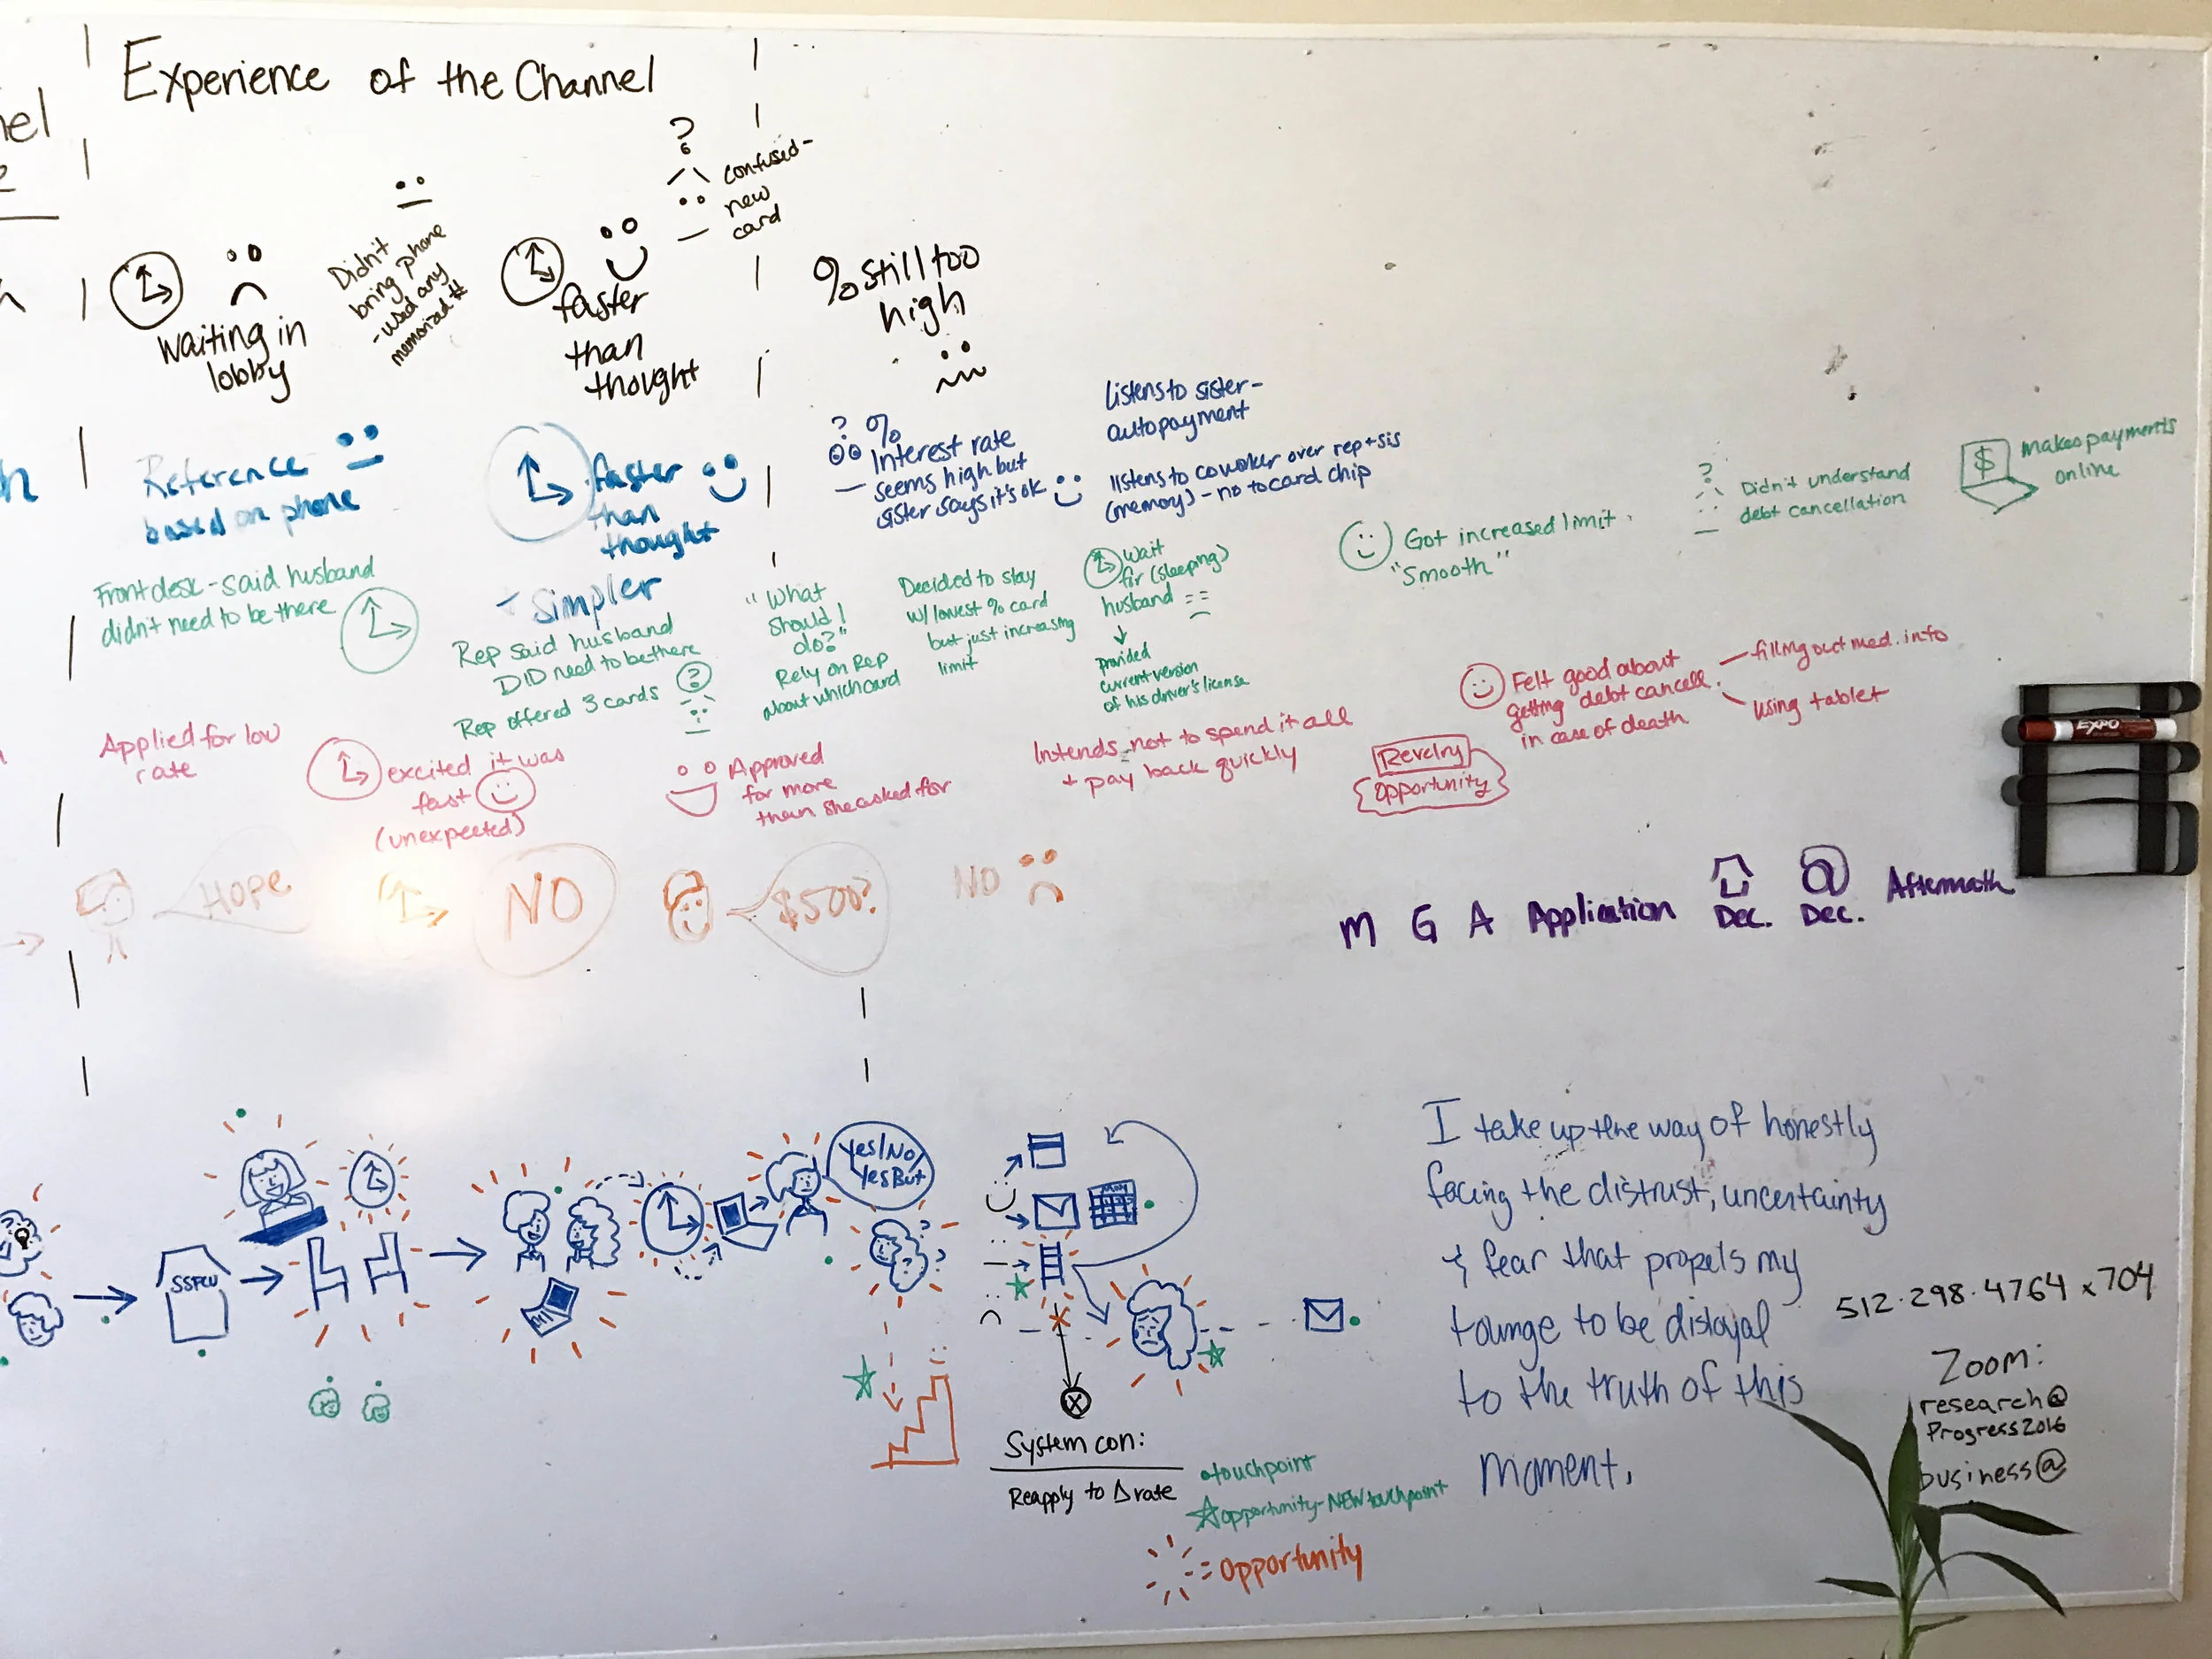 nel
Experience of the Channel
?
confused-
new
card
Didn't
bring phone
-used any
memorized #
waiting in
lobby
faster
than
thought
% still too
high
Reference
based on phone
faster
than
thought
- simpler
? %
Interest rate
seems high but
sister says it's ok
Listens to sister-
autopayment
listens to coworker over rep + sis
(memory) - no to card chip
Front desk - said husband
didn't need to be there
Rep said husband
DID need to be there
Rep offered 3 cards
?
"What
should I
do?"
Rely on Rep
about which card
Decided to stay
w/ lowest % card
but just increasing
limit
wait
for (sleeping)
husband
provided
current version
of his driver's license
Got increased limit
"Smooth"
?
Didn't understand
debt cancellation
$
makes payments
online
Applied for low
rate
excited it was
fast
(unexpected)
Approved
for more
than she asked for
Intends not to spend it all
+ pay back quickly
Revelry
Opportunity
Felt good about
getting debt cancell.
in case of death
filling out med. info
using tablet
HOPE
NO
$500?
NO
M G A Application Dec. @ Dec. Aftermath
SSFCU
Yes/No/
Yes But
? ?
May
System con:
Reapply to Δ rate
touchpoint
opportunity-NEW touchpoint
= Opportunity
I take up the way of honestly
facing the distrust, uncertainty
& fear that propels my
tounge to be disloyal
to the truth of this
moment.
512·298·4764 x704
Zoom:
research@
Progress2016
business@
EXPO